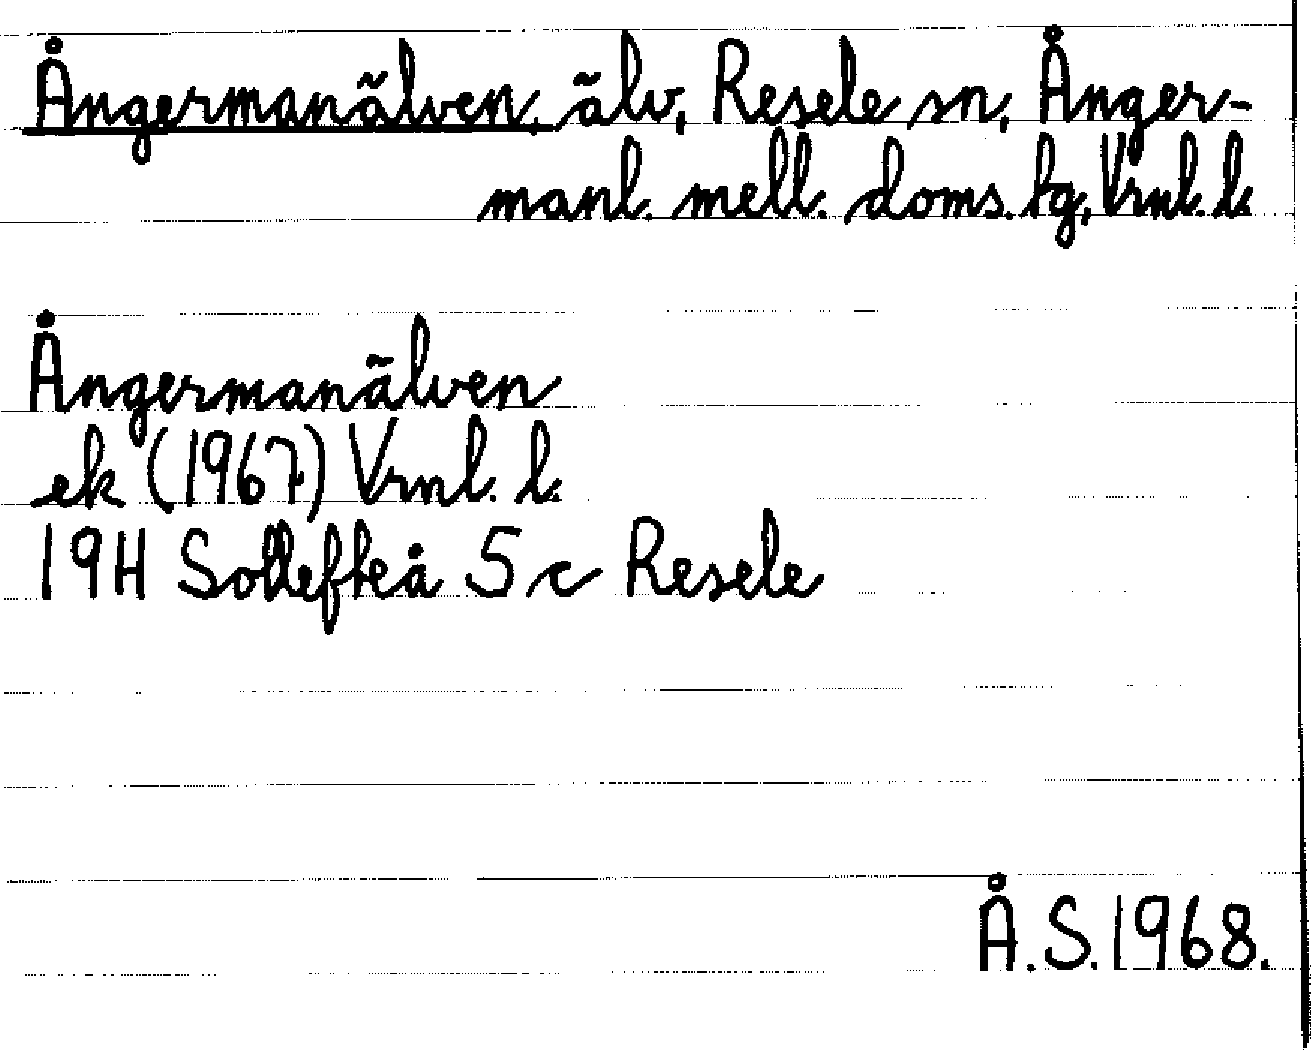 Ångermanälven, älv, Resele sn, Ånger-
manl. mell. doms. tg, Vrnl. l.
Ångermanälven
ek (1967) Vrnl. l.
19H Sollefteå 5 c Resele
Å.S. 1968.